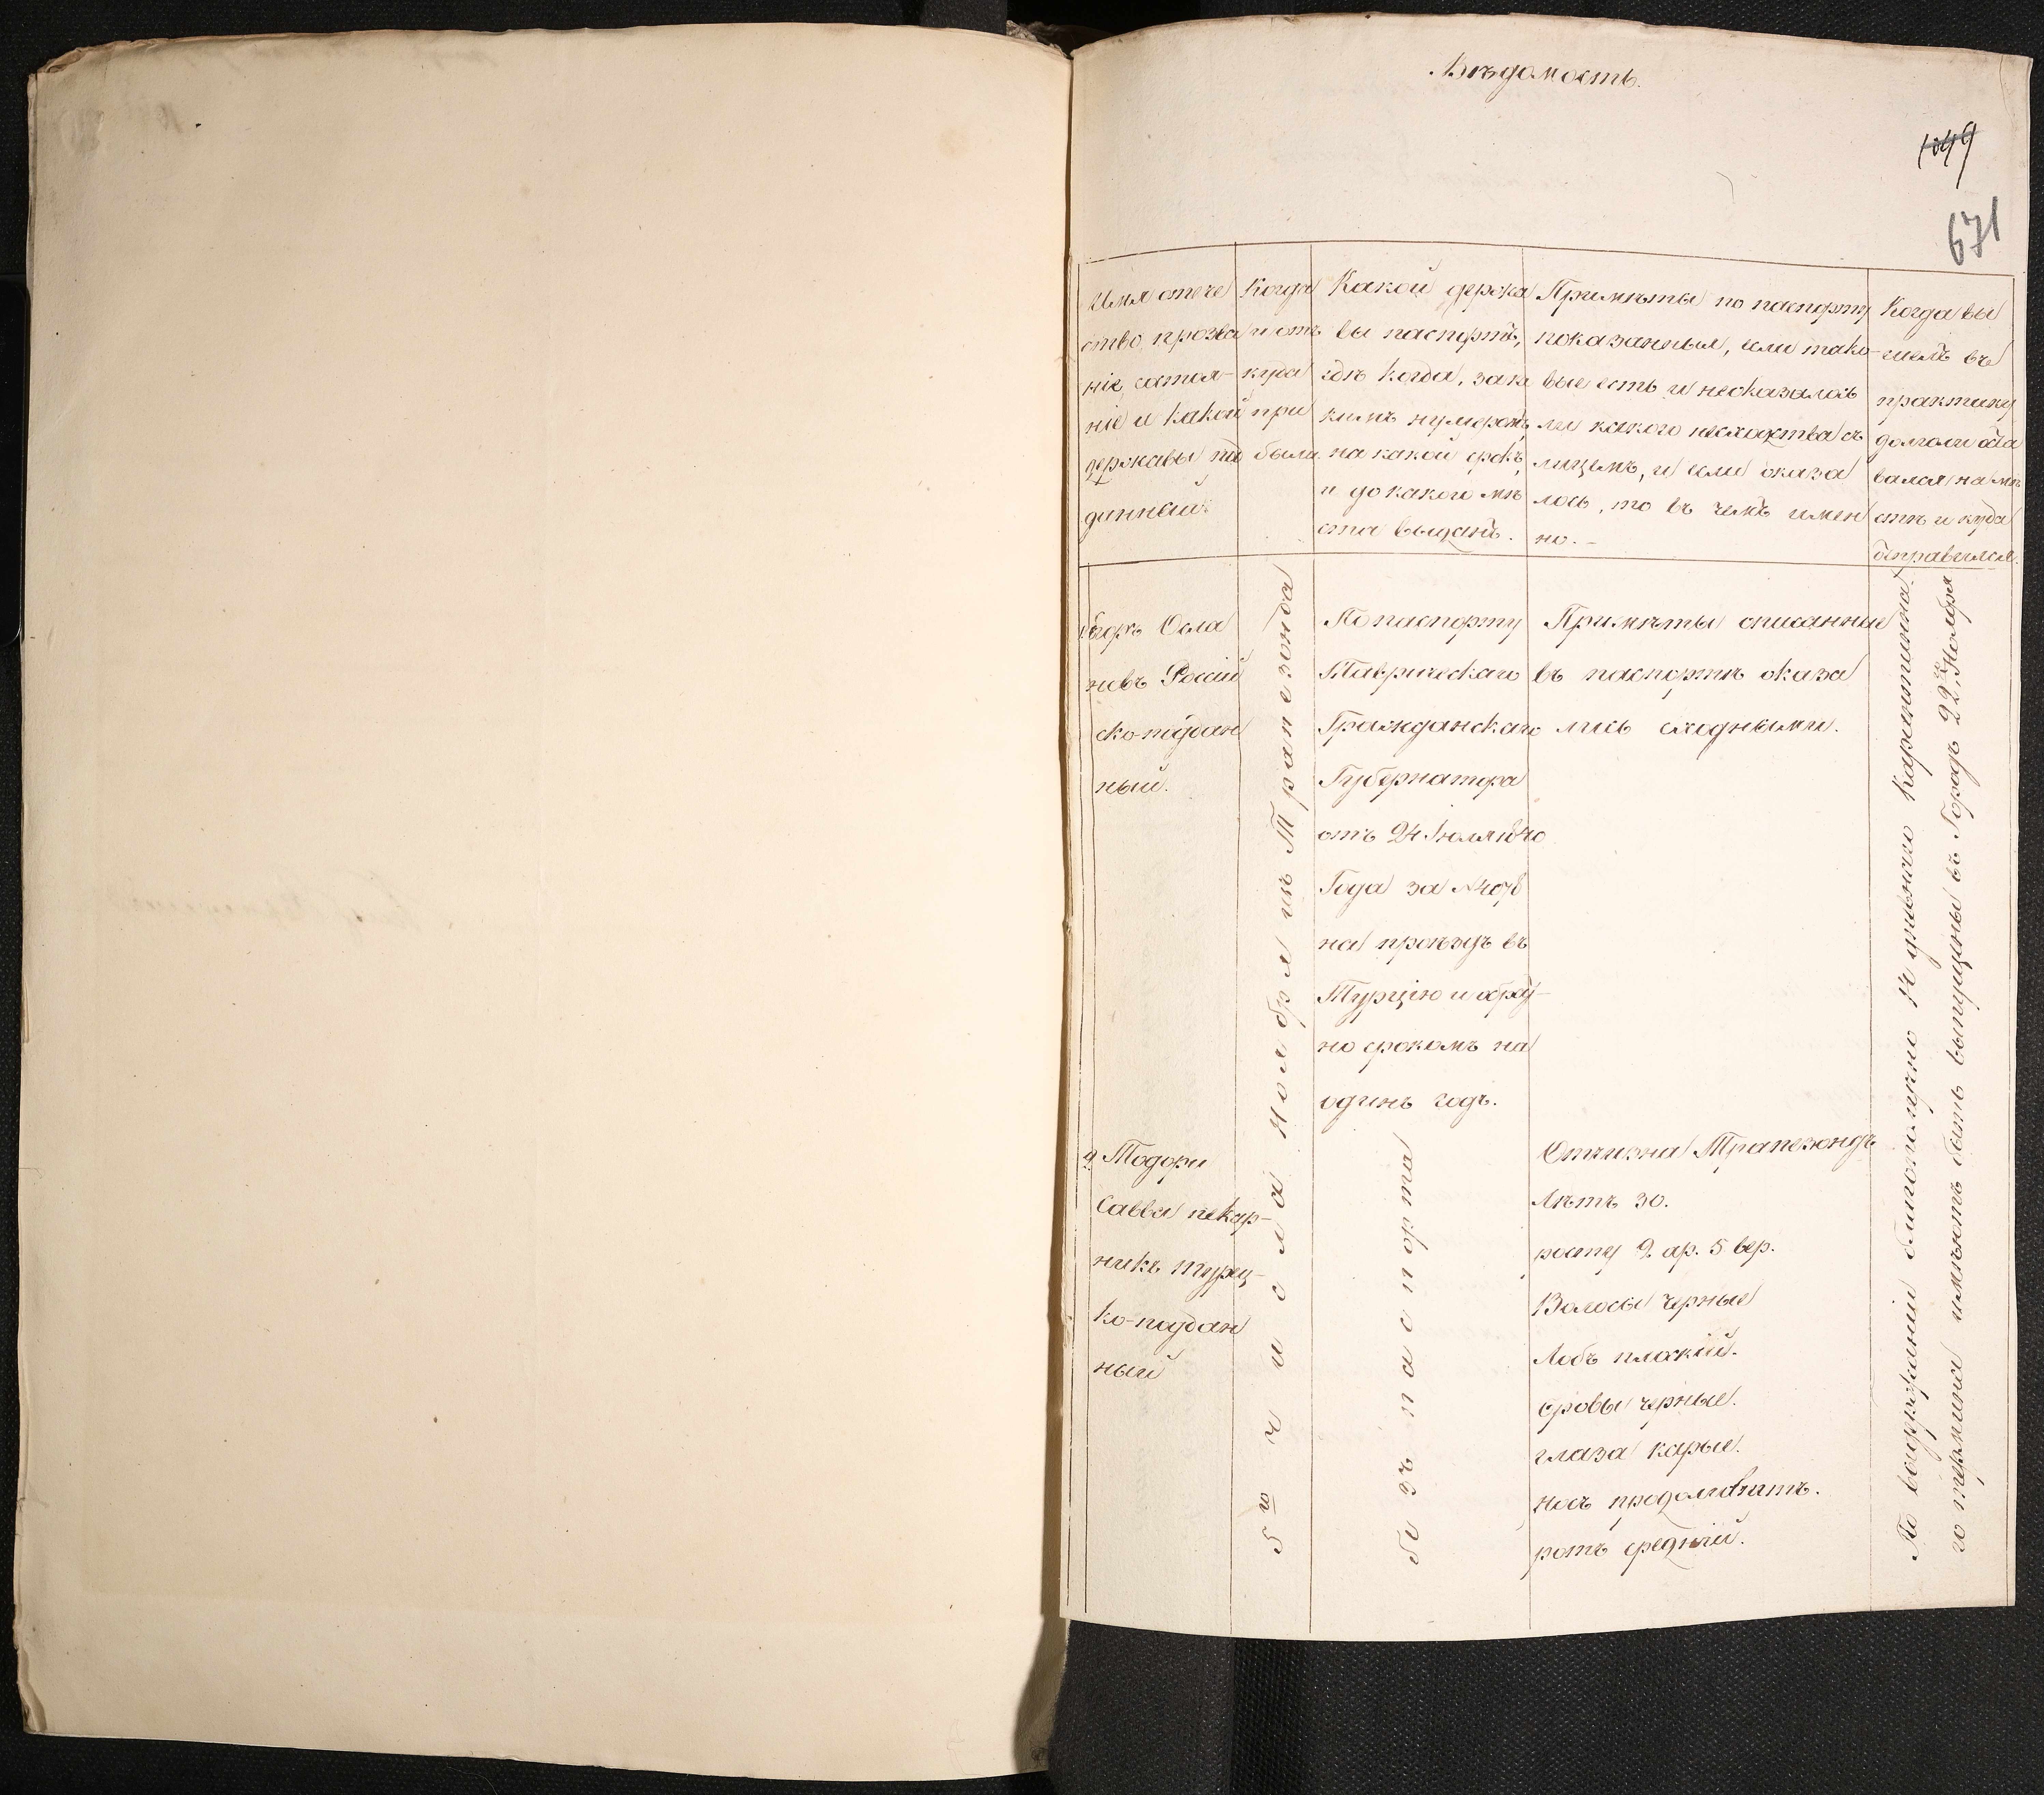 Вѣдомость.
1049
671
Имя отече
ство, прозва
ніе, состоя-
ніе и какой
державы по
данный
Когда
и от
куда
при
были
Какой держа
вы паспортъ,
гдѣ когда, зака
кимъ нумеромъ,
на какой срокъ,
и до какого мѣ
ста выданъ.
Примѣты по паспорту
показанныя, если тако-
вые есть и несказалось
ли какого несходства съ
лицемъ, и если оказа
лось, то въ чемъ имен
но. -
Когда вы
шелъ въ
практику
долголи оста
вался на мѣ
стѣ и куда
отправился.
Осла
новъ Россій
ско-поддан
ный.
5го числа Ноября изъ Трапезонда
По паспорту
Таврическаго
Гражданскаго
Губернатора
отъ 24 Іюля 1840
Года за №
на проѣздъ въ
Турцію и обрат-
но срокомъ на
одинъ годъ.
Примѣты описанные
въ паспортѣ оказа
лись сходными.
По содержаніи благополучно 14 дневнаго Карантинна
го термина имѣютъ быть выпущены въ Городъ 22го Ноября
2. Тодори
Савва пекар-
никъ турец-
ко-поддан
ный
безъ паспорта
Отчизна Трапезондъ
Лѣтъ 30.
росту 2. ар. 5 вер.
Волосы черные
Лобъ плоскій.
бровы черные.
глаза карые.
носъ продолговатъ.
ротъ средній.